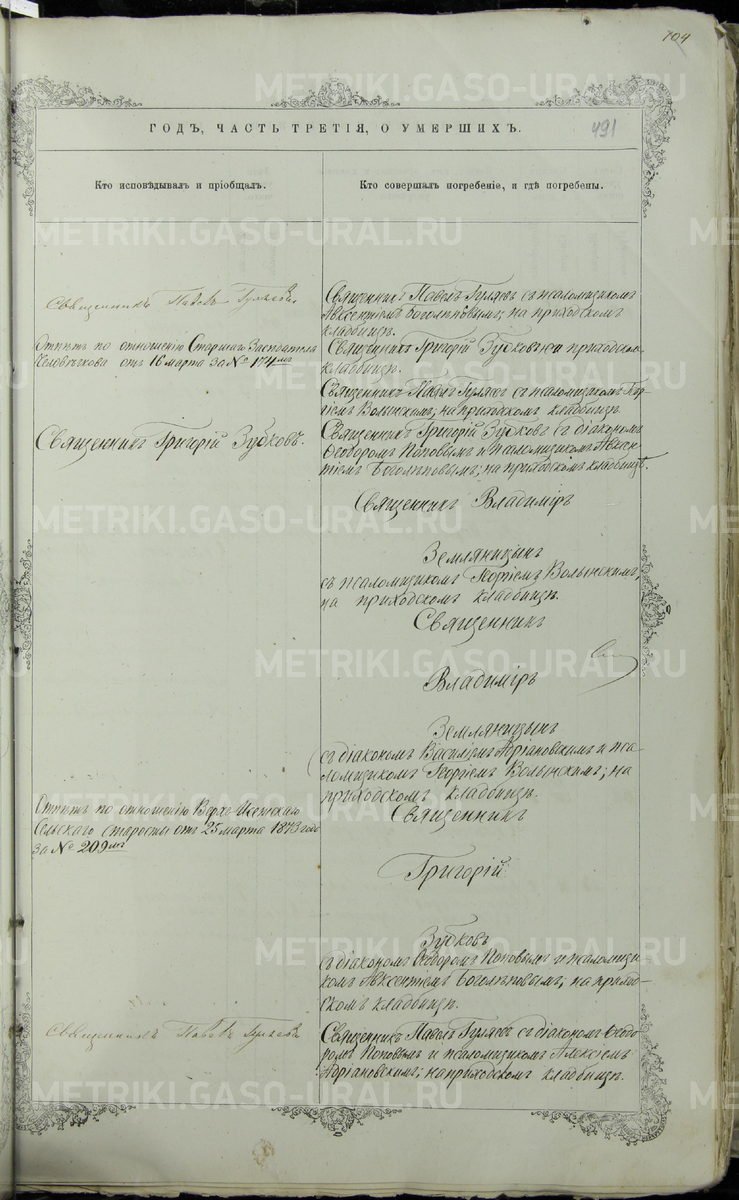 104
491
ГОДЪ, ЧАСТЬ ТРЕТІЯ, О УМЕРШИХЪ.
Кто исповѣдывалъ и пріобщалъ.
Кто совершалъ погребеніе, и гдѣ погребены.
Священникъ Павелъ Гуляевъ
Отпѣтъ по отношенію Старшаго Засѣдателя
Человѣчкова отъ 16 марта за № 174мъ
Священникъ Григорій Зубковъ.
Отпѣтъ по отношенію Верхъ-Исетскаго
Сельскаго старосты отъ 25 марта 1873 года
за № 209мъ
Священникъ Павелъ Гуляевъ
Священникъ Павелъ Гуляевъ съ псаломщикомъ
Авксентіемъ Боголѣповымъ; на приходскомъ
кладбищѣ.
Священникъ Григорій Зубковъ на приходскомъ
кладбищѣ.
Священникъ Павелъ Гуляевъ съ псаломщикомъ Геор-
гіемъ Волынскимъ; на приходскомъ кладбищѣ.
Священникъ Григорій Зубковъ съ діакономъ
Ѳеодоромъ Поповымъ и псаломщикомъ Авксен-
тіемъ Боголѣповымъ; на приходскомъ кладбищѣ.
Священникъ Владиміръ
Земляницынъ
съ псаломщикомъ Георгіемъ Волынскимъ;
на приходскомъ кладбищѣ.
Священникъ
Владиміръ
Земляницынъ
съ діакономъ Василіемъ Адріановскимъ и пса-
ломщикомъ Георгіемъ Волынскимъ; на
приходскомъ кладбищѣ.
Священникъ
Григорій
Зубковъ
съ діакономъ Ѳеодоромъ Поповымъ и псаломщи-
комъ Авксентіемъ Боголѣповымъ; на приход-
скомъ кладбищѣ.
Священникъ Павелъ Гуляевъ съ діакономъ Ѳеодо-
ромъ Поповымъ и псаломщикомъ Алексіемъ
Адріановскимъ; на приходскомъ кладбищѣ.
METRIKI.GASO-URAL.RU